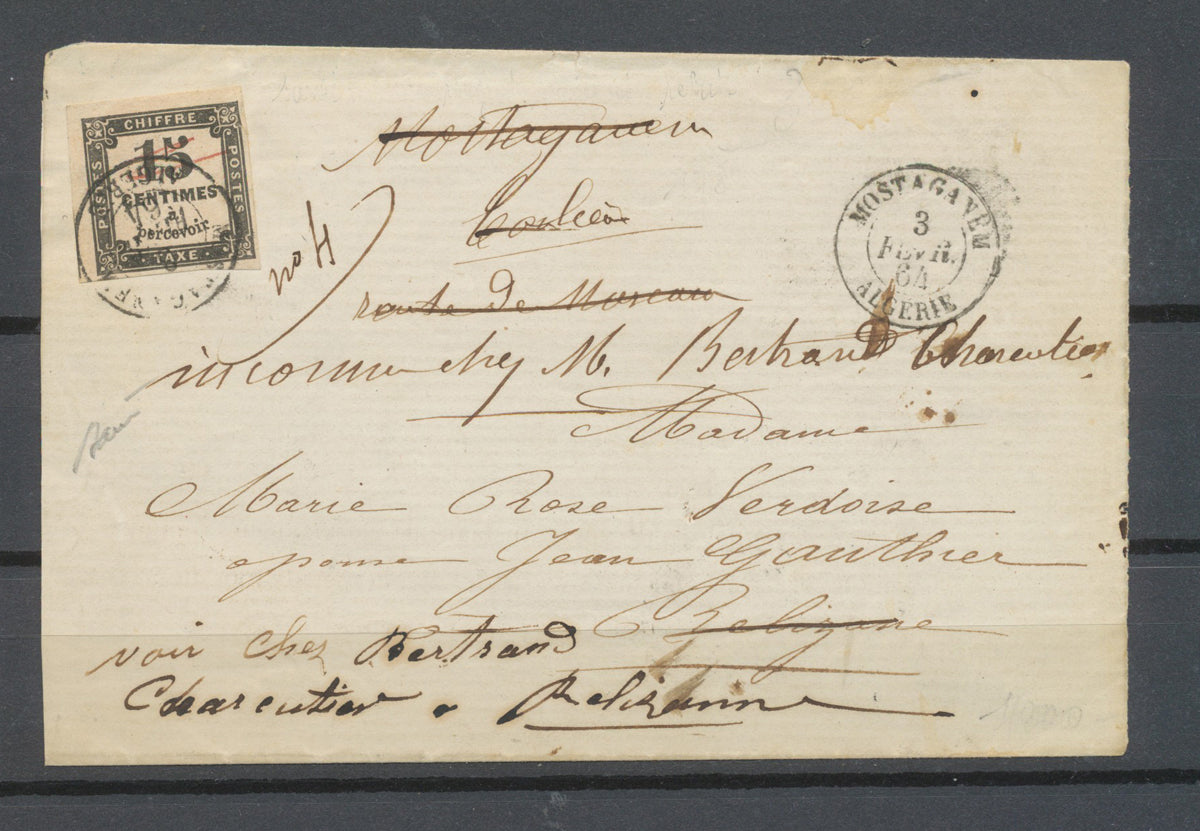 CHIFFRE
POSTES
POSTES
15
CENTIMES
à
percevoir
TAXE
Mostaganem
route de Mascara
no H
MOSTAGANEM
3
FEVR.
64
ALGÉRIE
inconnu chez M. Bertrand Charcutier
Madame
Marie Rose Verdoise
epouse Jean Gauthier
à Relizane
voir chez Bertrand
Charcutier à Relizanne